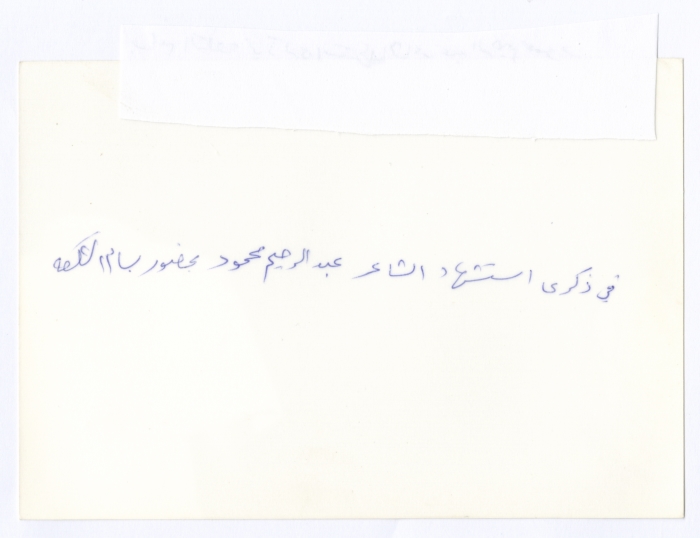 في ذكرى استشهاد الشاعر عبد الرحيم محمود بحضور بسام الشكعه